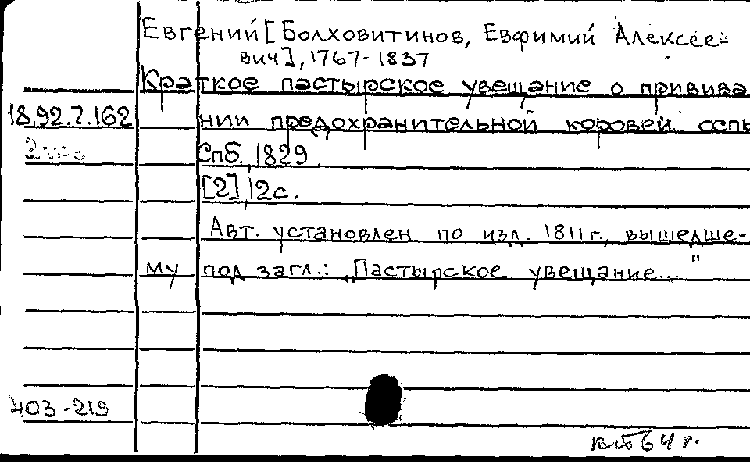 Евгений [Болховитинов, Евфимий Алексее-
вич], 1767-1837
Краткое пастырское увещание о привива
18.92.7.162 нии предохранительной коровей оспы
2 экз
Спб. 1829
[2] 12 с.
Авт. установлен по изд. 1811 г., вышедше-
му под загл.: „Пастырское увещание..."
403-219
64 г.